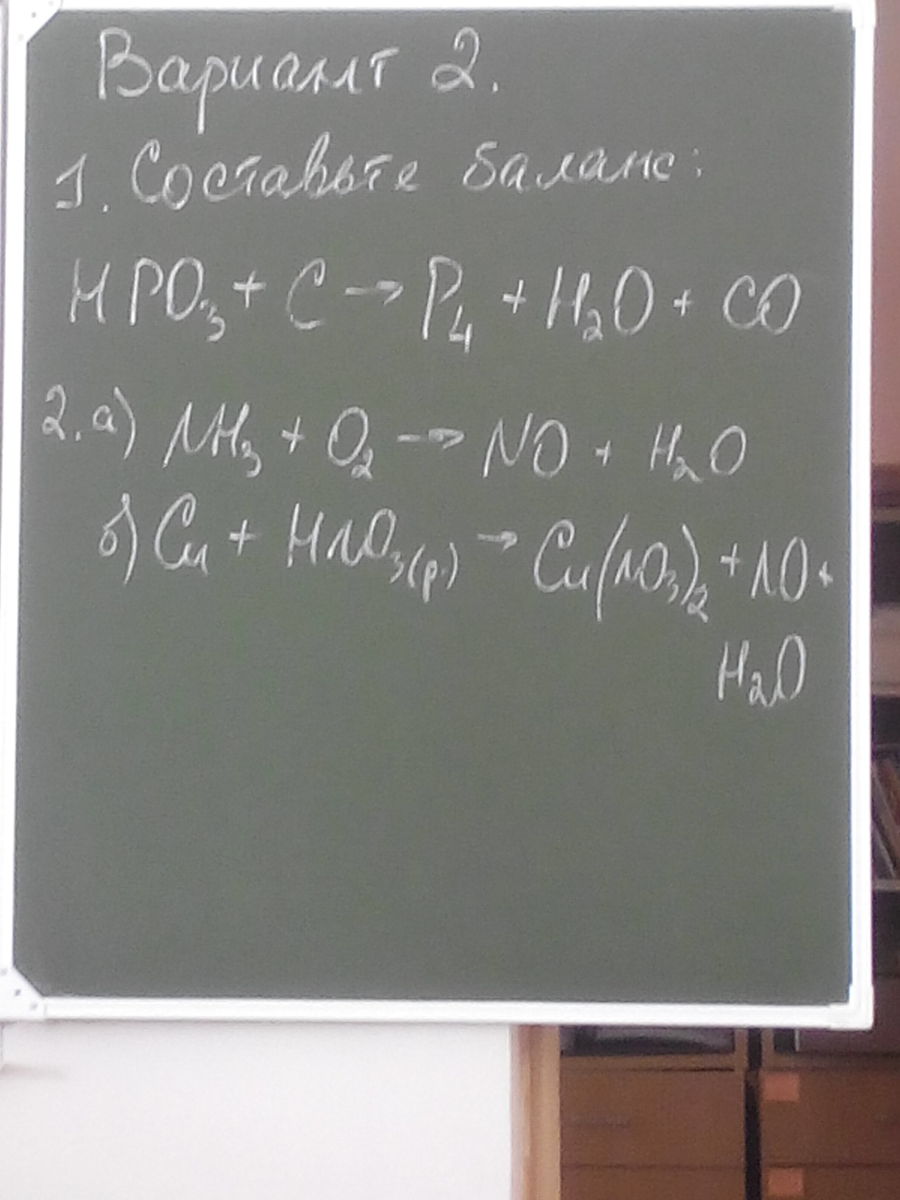 Вариант 2.
1. Составьте баланс:
HPO₃ + C → P₄ + H₂O + CO
2. а) NH₃ + O₂ → NO + H₂O
б) Cu + HNO₃(р.) → Cu(NO₃)₂ + NO +
H₂O